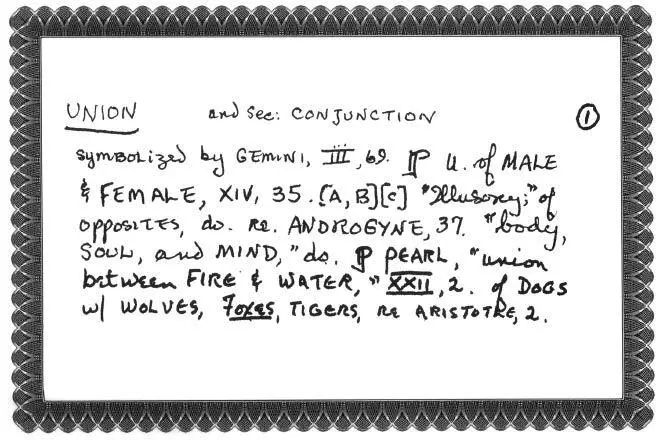 UNION and see: CONJUNCTION ①
symbolized by GEMINI, III, 69. ¶ U. of MALE
& FEMALE, XIV, 35. [A, B][C] "Illusory;" of
OPPOSITES, do. re. ANDROGYNE, 37. "body,
SOUL, and MIND," do. ¶ PEARL, "union
between FIRE & WATER," XXII, 2. of DOGS
w/ WOLVES, FOXES, TIGERS, re ARISTOTLE, 2.